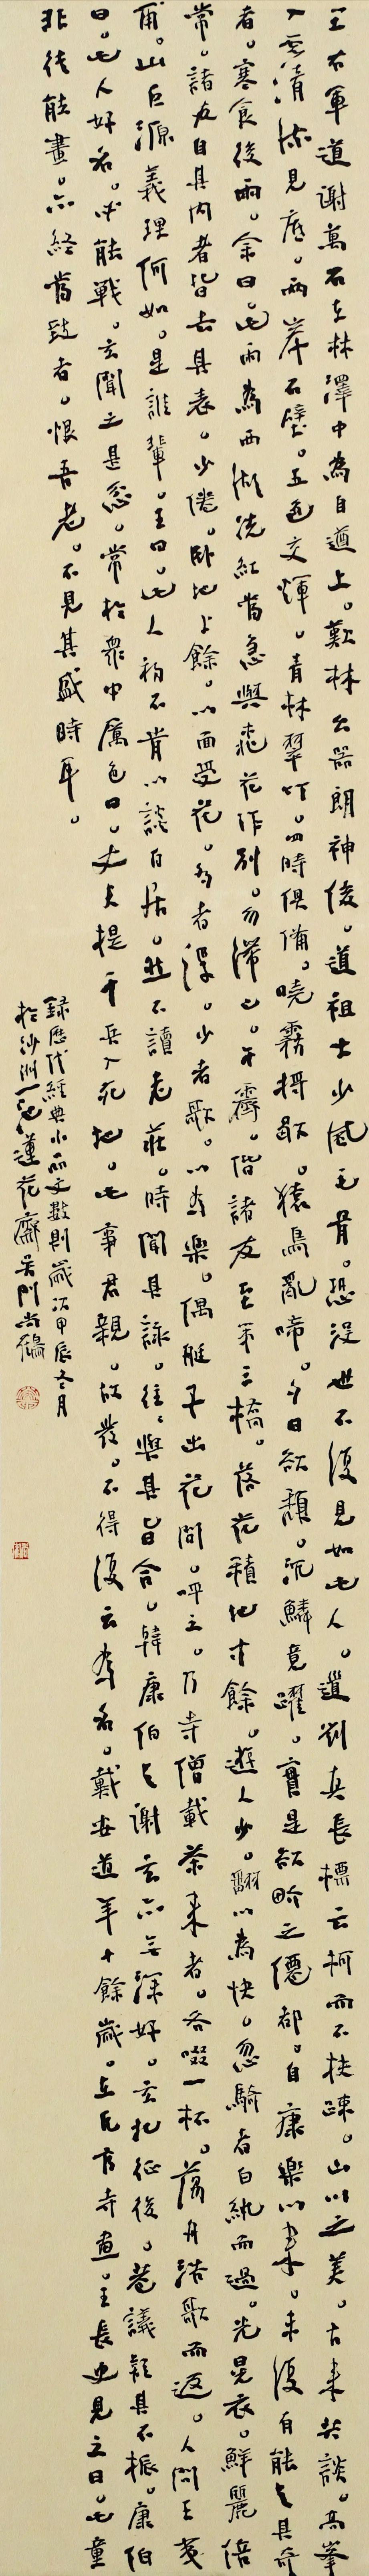 王右軍道謝萬石在林澤中為自遒上。歎林公器朗神俊。道祖士少風毛骨。恐沒世不復見如此人。道劉真長標云柯而不扶疎。山川之美。古來共談。高峯
入雲清流見底。兩岸石壁。五色交輝。青林翠竹。四時俱備。曉霧將歇。猿鳥亂啼。夕日欲頹。沉鱗竟躍。實是欲界之僊都。自康樂以來。未復有能與其奇
者。寒食後雨。余曰。此雨為西湖洗紅當急與桃花作別。勿滯也。午霽。偕諸友至第三橋。落花積地寸餘。遊人少。翻以為快。忽騎者白紈而過。光晃衣。鮮麗倍
常。諸友白其內者皆去其表。少倦。卧地上餘。以面受花。多者浮。少者歌。以為樂。偶艇子出花間。呼之。乃寺僧載茶來者。各啜一杯。蕩舟浩歌而返。人問王夷
甫。山巨源義理何如。是誰輩。王曰。此人初不肯以談自居。然不讀老莊。時聞其詠。往往與其旨合。韓康伯與謝玄亦無深好。玄北征後。巷議疑其不振。康伯
曰。此人好名。必能戰。玄聞之甚忿。常於衆中厲色曰。丈夫提千兵入死地。以事君親。故發。不得復云為名。戴安道年十餘歲。在瓦官寺畫。王長史見之曰。此童
非徒能畫。亦終當致名。恨吾老。不見其盛時耳。
錄歷代經典小品文數則歲次甲辰冬月
於沙洲一池蓮花齋吳門尚鵠